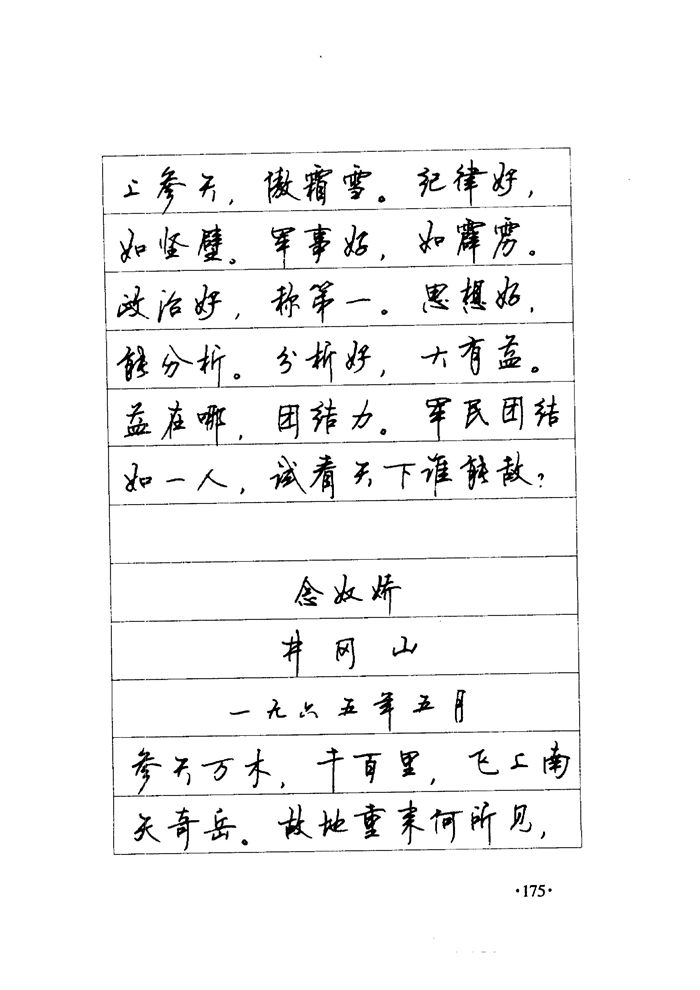 上参天，傲霜雪。纪律好，
如坚壁。军事好，如霹雳。
政治好，称第一。思想好，
能分析。分析好，大有益。
益在哪，团结力。军民团结
如一人，试看天下谁能敌？
念奴娇
井冈山
一九六五年五月
参天万木，千百里，飞上南
天奇岳。故地重来何所见，
·175·